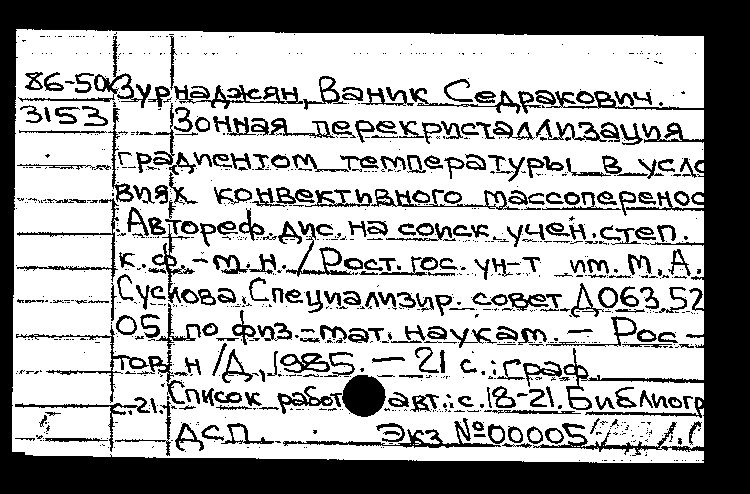 86-50 Зурнаджян, Ваник Седракович.
3153 Зонная перекристаллизация
градиентом температуры в усло
виях конвективного массоперенос
. Автореф. дис. на соиск. учен. степ.
к. ф.-м. н. / Рост. гос. ун-т им. М. А.
Суслова. Специализир. совет Д 063.52
05 по физ.-мат. наукам. — Рос-
тов н/Д, 1985. — 21 с.: граф.
Список работ авт.: с. 18-21. Библиогр
с. 21.
ДСП. Экз №00005